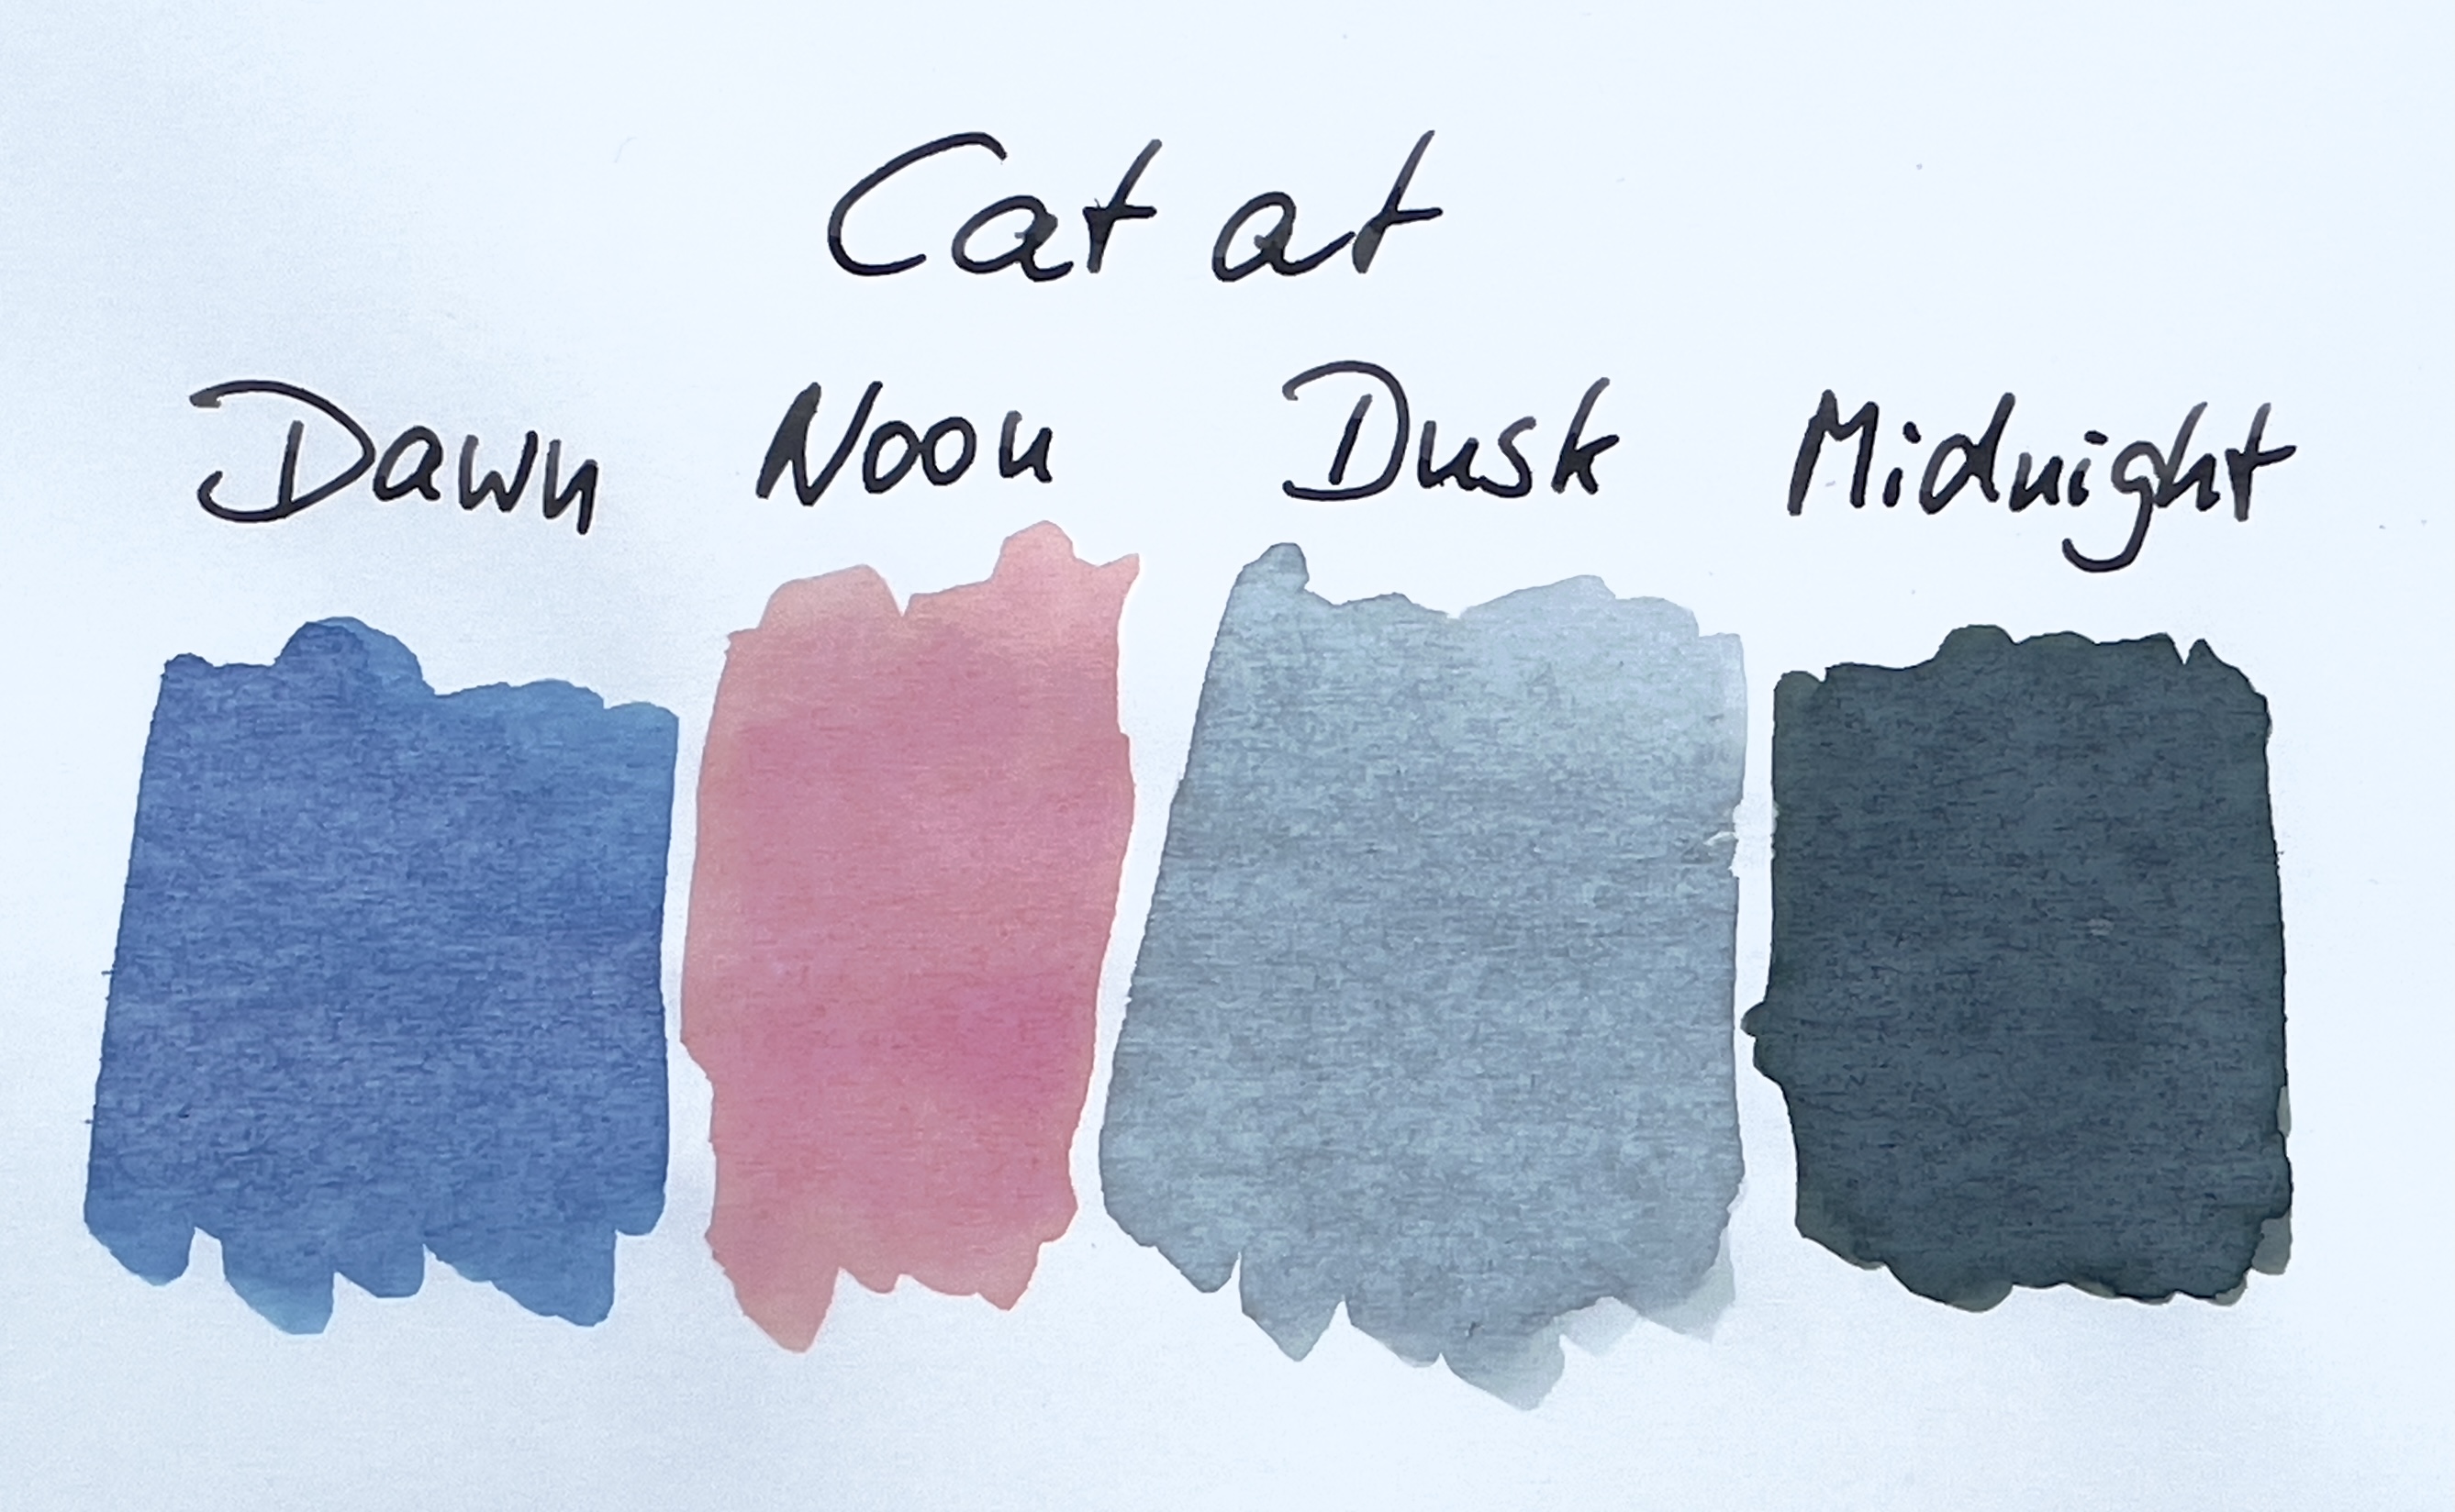 Cat at
Dawn Noon Dusk Midnight